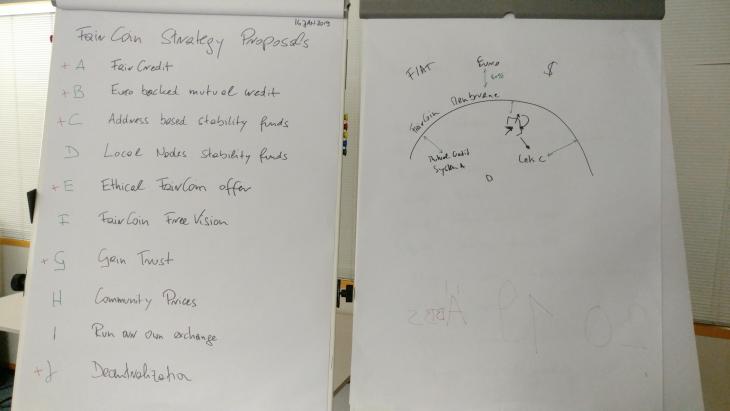 16 JAN 2019
FairCoin Strategy Proposals
+ A FairCredit
+ B Euro backed mutual credit
+ C Address based stability funds
D Local Nodes stability funds
+ E Ethical FairCoin offer
F FairCoin Free Vision
+ G Gain Trust
H Community Prices
I Run our own exchange
+ J Decentralization
FIAT
Euro
$
FairCoin Membrane
Mutual Credit
System A
C
D